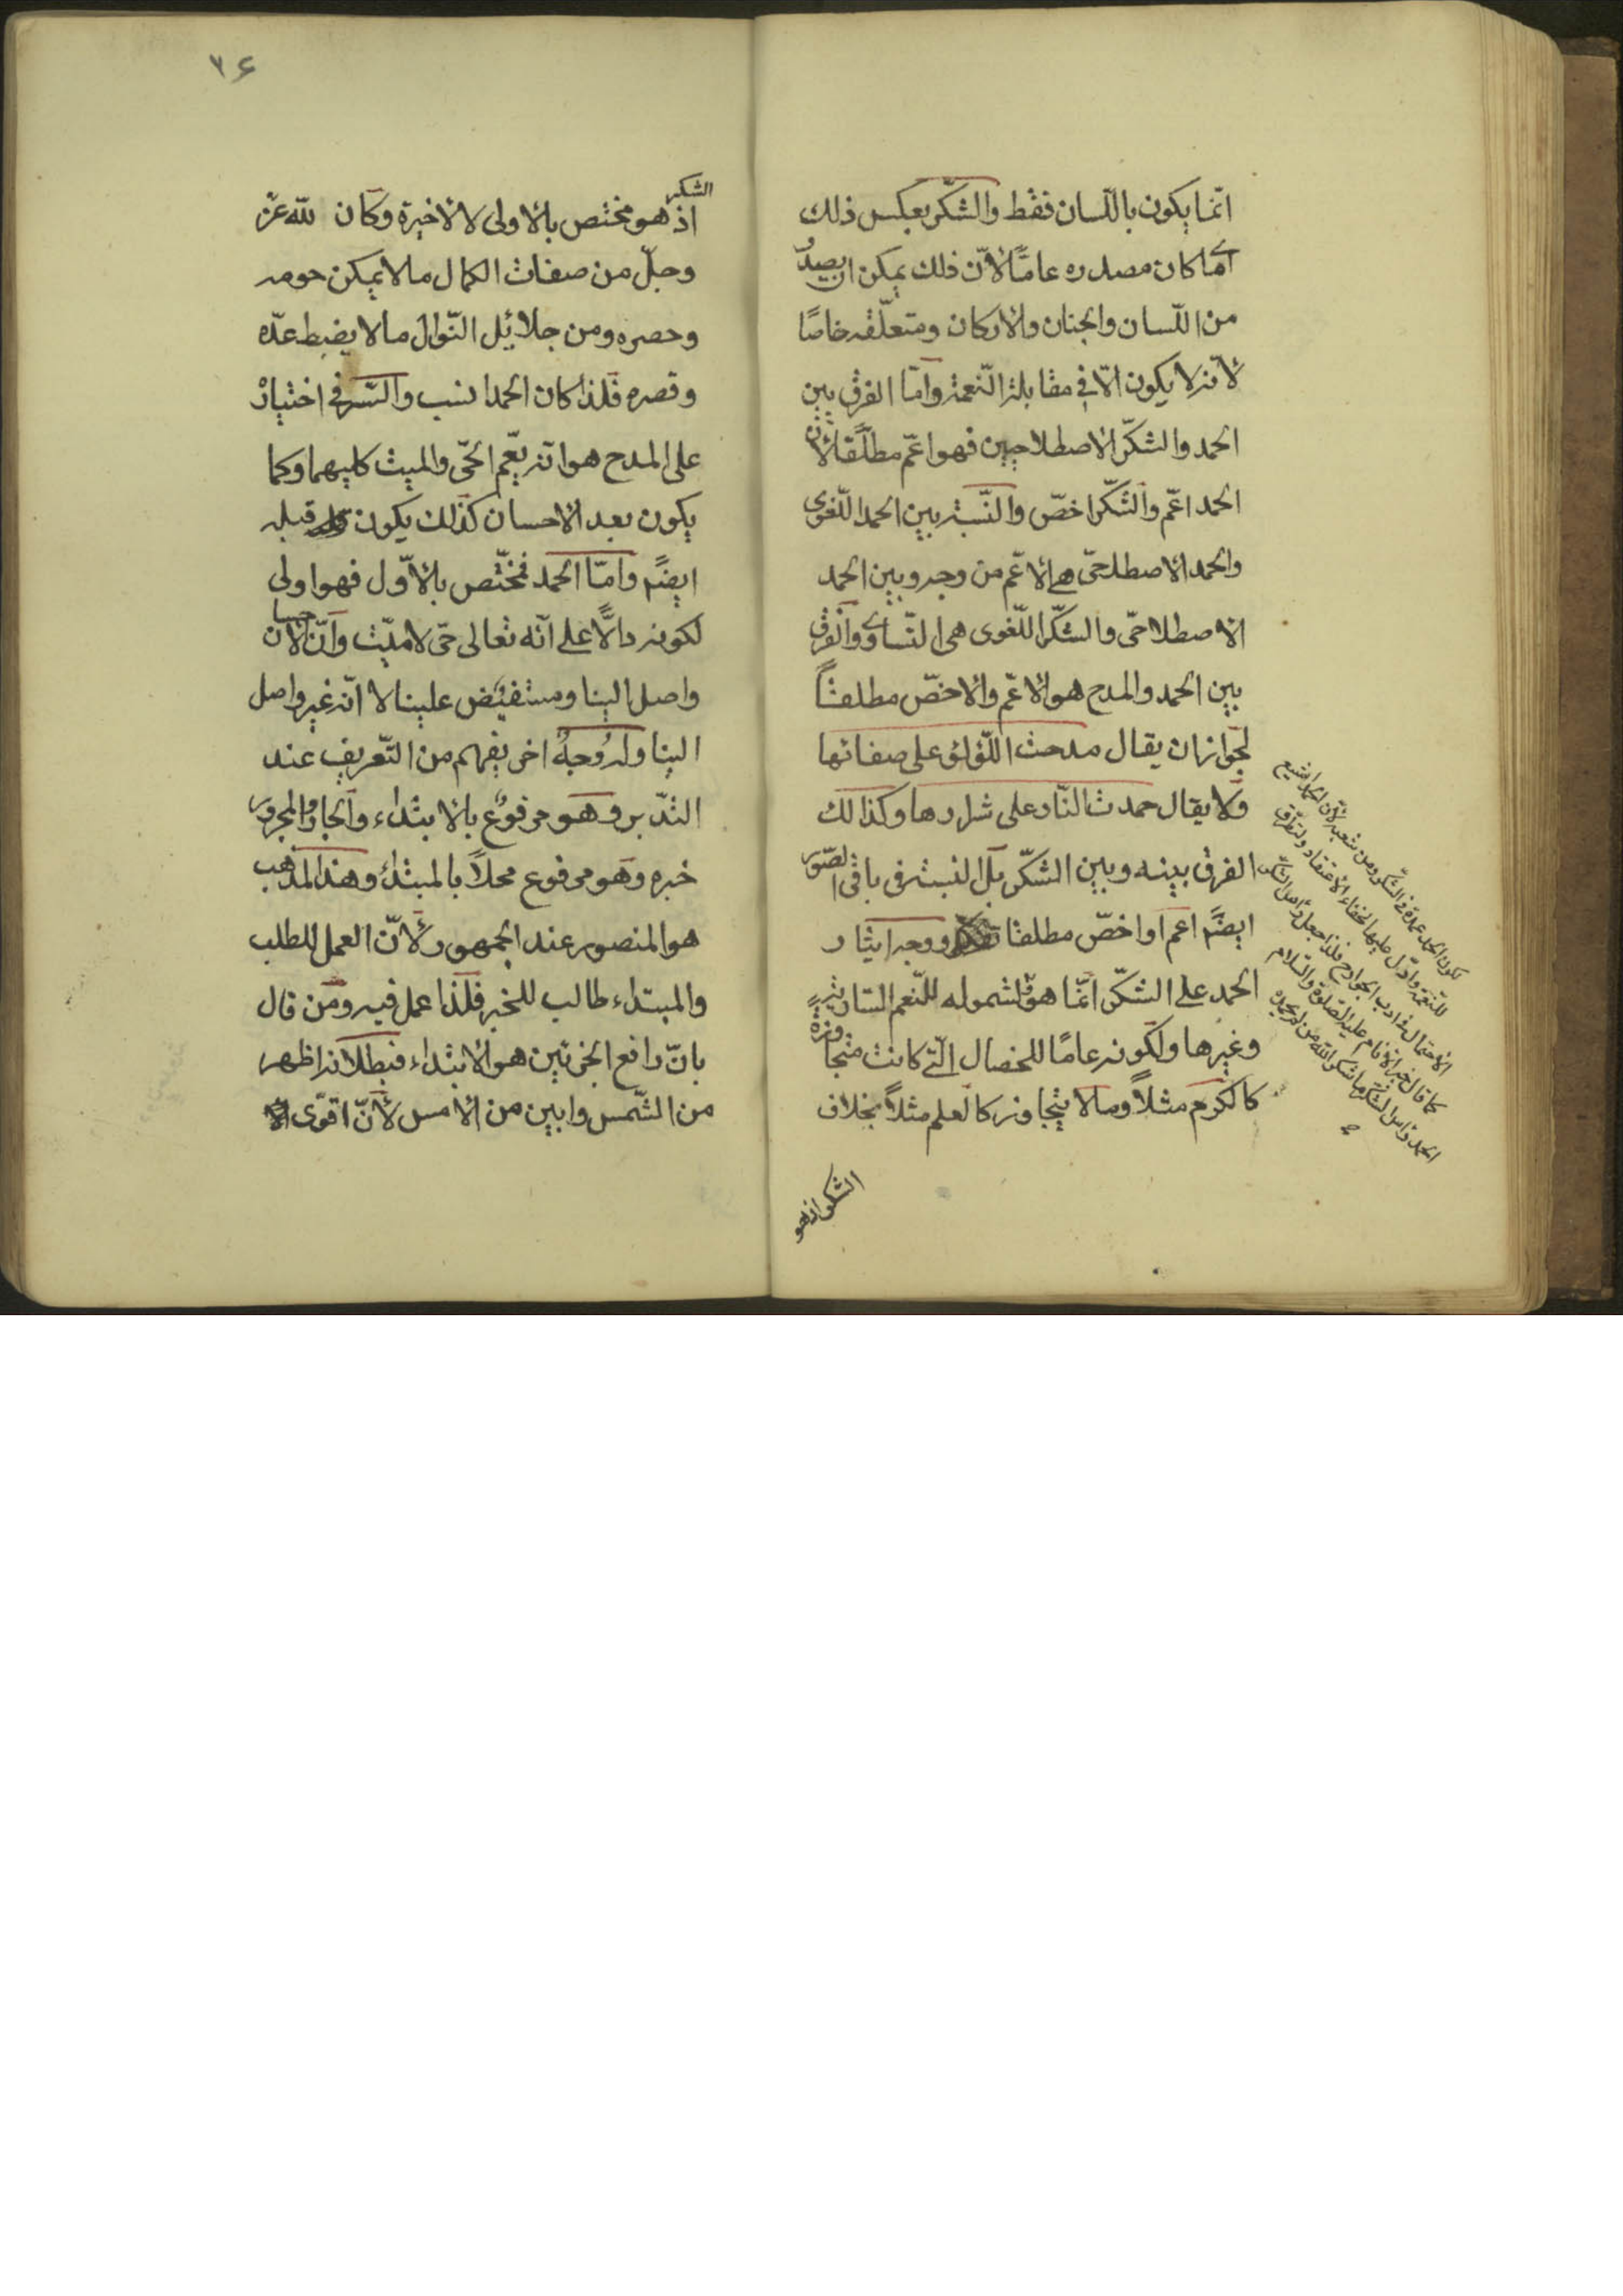 انّما يكون باللّسان فقط والشّكر بعكس ذلك
اى ما كان مصدره عامّا لأنّ ذلك يمكن ان يصدر
من اللّسان والجنان والاركان ومتعلّقه خاصّا
لأنّه لا يكون الّا فى مقابلة النّعمة وامّا الفرق بين
الحمد والشكّر الاصطلاحيين فهو اعّم مطلقا لأنّ
الحمد اعّم والشكّر اخصّ والنّسبة بين الحمد اللّغوى
والحمد الاصطلاحّى هى الاعّم من وجه وبين الحمد
الاصطلاحّى والشكّر اللّغوى هى التّساوى والفرق
بين الحمد والمدح هو الاعّم والاخصّ مطلقاً
لجواز ان يقال مدحت اللّؤلؤ على صفائها
ولا يقال حمدت النّار على شرارها وكذالك
الفرق بينه وبين الشكّر بل النسبة فى باقى الصّور
ايضًا اعم او اخصّ مطلقا ووجه ايثار
الحمد على الشكّر انّما هو لشموله للنّعم السّارية
وغيرها ولكونه عامًا للخصال الّتى كانت متجاوزة
كالكرم مثلاً وما لا يتجاوز كالعلم مثلاً بخلاف
الشكر اذ هو
لكون الحمد عمدة فى الشّكر ومن شعبه لأنّ الحمد اشيع
للنّعمة وادلّ عليها لخفاء الاعتقاد وتطرّق
الاحتمال فى ادب الجوارح فلذا جعل رأس الشّكر
كما قال خير الانام عليه الصّلوة والسّلام
الحمد رأس الشّكر ما شكر اللّه من لم يحمده
٢٦
الشكر
اذ هو مختص بالاولى لا الاخيرة وكان للّه عزّ
وجلّ من صفات الكمال ما لا يمكن حومه
وحصره ومن جلائل النّوال ما لا يضبط عدّه
وقصره فلذا كان الحمد انسب والسّر فى اختياره
على المدح هو انّه يعّم الحّى والميت كليهما وكما
يكون بعد الاحسان كذلك يكون قبله
ايضًا وامّا الحمد فمختّص بالأوّل فهو اولى
لكونه دالًّا على انّه تعالى حّى لا ميّت وانّ الاحسان
واصل الينا ومستفيض علينا لا انّه غير واصل
الينا وله وُجوهُ اخر يفهم من التّعريف عند
التّدبر وهو مرفوع بالابتداء والجار والمجرور
خبره وهو مرفوع محلاً بالمبتدأ وهذا المذهب
هو المنصور عند الجمهور لأنّ العمل للطلب
والمبتداء طالب للخبر فلذا عمل فيه ومن قال
بانّ رافع الجزئين هو الابتداء فبطلانه اظهر
من الشّمس وابين من الامس لأنّ اقوى